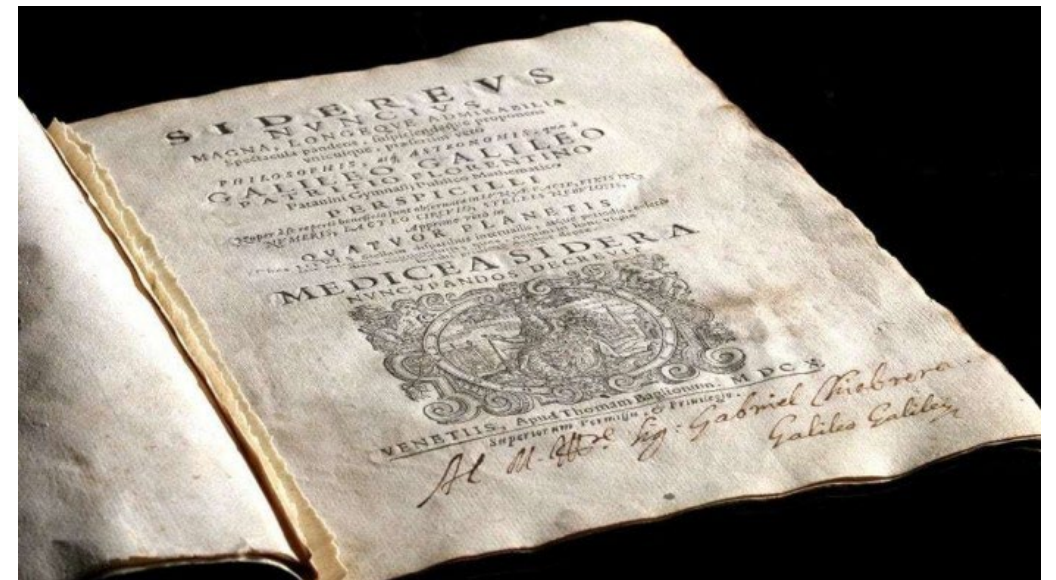 SIDEREVS
NVNCIVS
MAGNA, LONGEQVE ADMIRABILIA
Spectacula pandens, suspiciendaque proponens
vnicuique, præsertim verò
PHILOSOPHIS, atq; ASTRONOMIS, quæ à
GALILEO GALILEO
PATRITIO FLORENTINO
Patauini Gymnasij Publico Mathematico
PERSPICILLI
Nuper à se reperti beneficio sunt obseruata in LVNÆ FACIE, FIXIS IN-
NVMERIS, LACTEO CIRCVLO, STELLIS NEBVLOSIS,
Apprime verò in
QVATVOR PLANETIS
MEDICEA SIDERA
NVNCVPANDOS DECREVIT
VENETIIS, Apud Thomam Baglionum. MDCX
Superiorum Permissu, & Priuilegio.
Al M. Sig: Gabriel Chiebrera.
Galileo Galilei